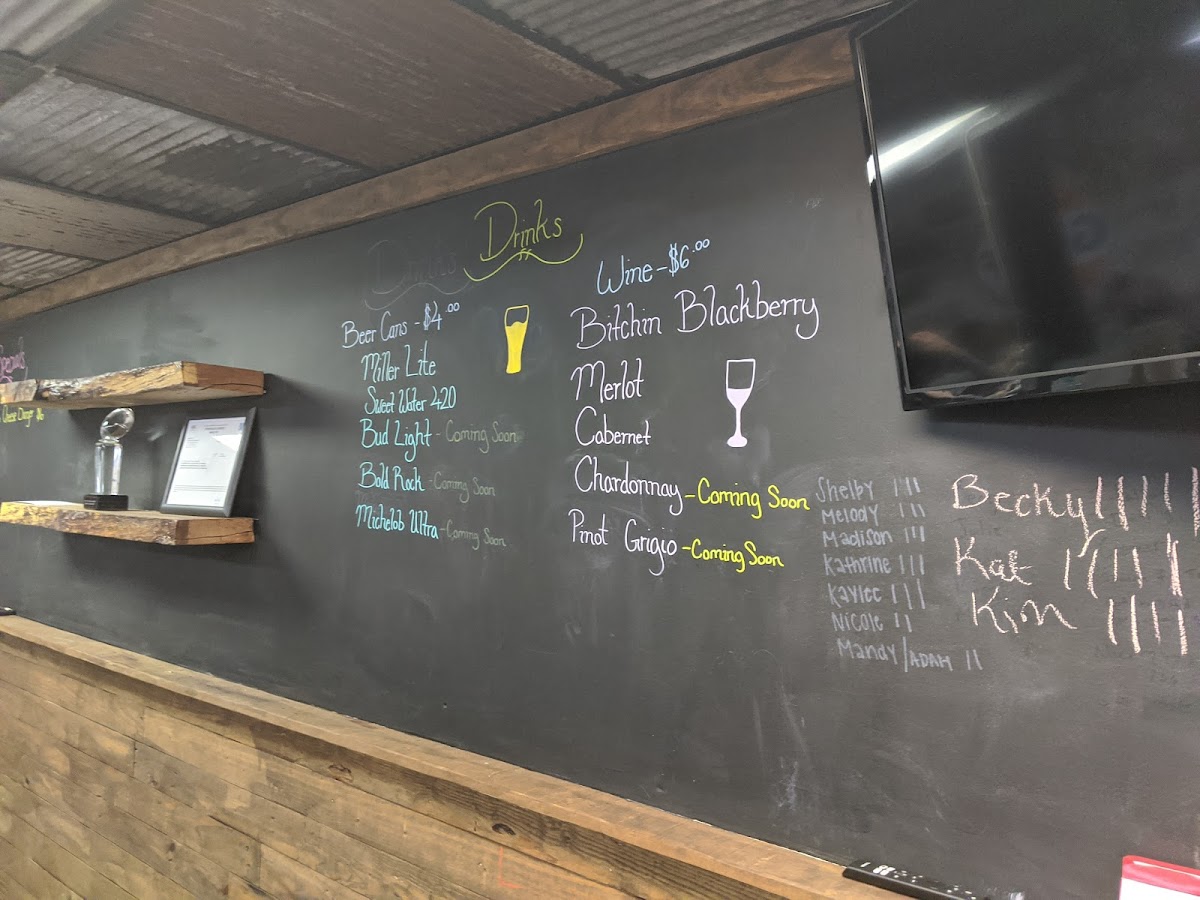 Drinks
Drinks
Beer Cans - $4.00
Miller Lite
Sweet Water 420
Bud Light - Coming Soon
Bold Rock - Coming Soon
Michelob Ultra - Coming Soon
Wine - $6.00
Bitchin Blackberry
Merlot
Cabernet
Chardonnay - Coming Soon
Pinot Grigio - Coming Soon
Specials
Cheese Danger $6
Shelby ||||
Melody |||
Madison |||
Kathrine |||
Kaylee |||
Nicole ||
Mandy/ADAM ||
Becky
Kat
Kim